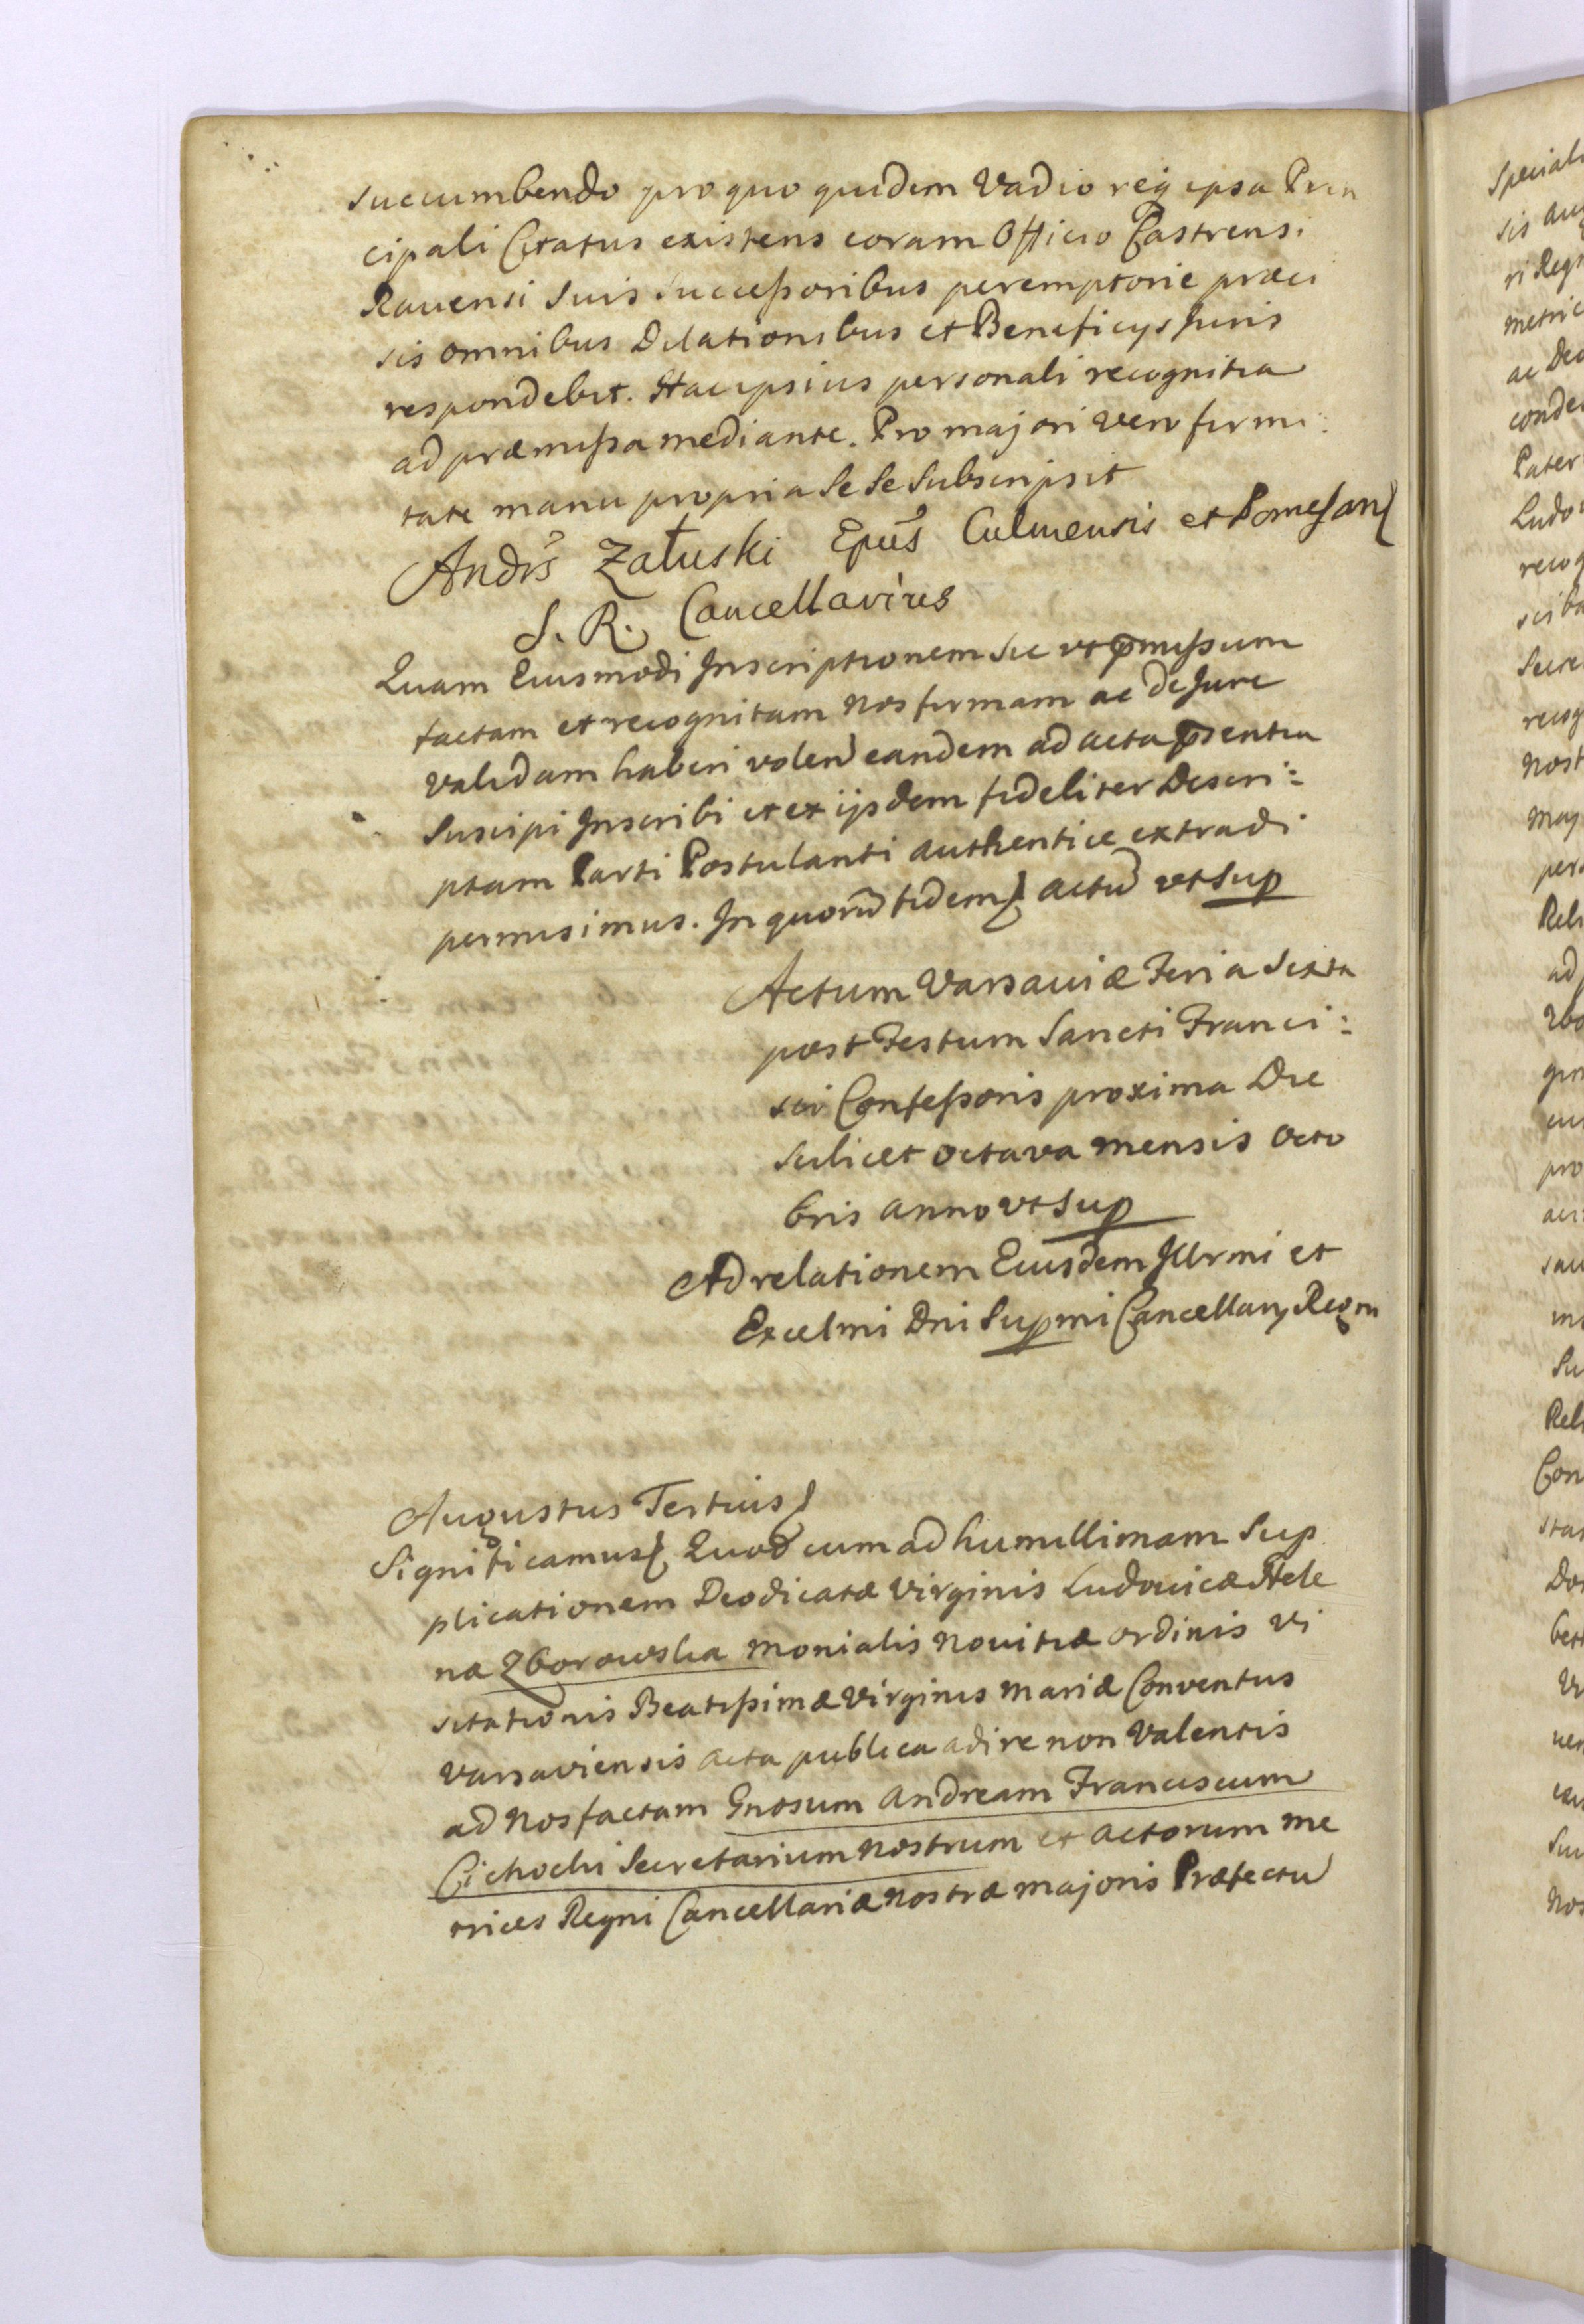 succumbendo pro quo quidem Vadio reg ipsa Prin
cipali Citatus existens coram Officio Castrensi
Rauensi Suis Successoribus peremptorie præci
sis omnibus Dilationibus et Beneficijs Juris
respondebit. Hac ipsius personali recognitia
ad præmissa mediante. Pro majori vero firmi:
tate manu propria Se Se Subscripsit
Andrs Załuski Epus Culmensis et Pomesan
S. R. Cancellarius
Quam Eiusmodi Inscriptionem Sic vt pmissum
factam et recognitam Nos firmam ac de Jure
validam haberi volen eandem ad acta psentia
Suscipi Inscribi et ex ijsdem fideliter Descri:
ptam Parti Postulanti authentice extradi
permisimus. In quorū fidem actū vt Sup
Actum Varsauiæ Feria Sexta
post Festum Sancti Franci:
sci Confessoris proxima Die
Scilicet octava mensis Octo
bris anno vt Sup
Ad relationem Eiusdem Illrmi et
Excelmi Dni Supmi Cancellarij Regni
Augustus Tertius
Significamus Quod cum ad humillimam Sup
plicationem Deodicatæ Virginis Ludouicæ Hele
næ Zborowska Monialis Nouitiæ ordinis Vi
sitationis Beatissimæ Virginis Mariæ Conventus
Varsaviensis acta publica adire non Valentis
ad Nos factam Gnosum Andream Franciscum
Cichocki Secretarium Nostrum et actorum me
trices Regni Cancellariæ Nostræ majoris Præfectū
Speciali
sis
ri Reg
metric
ac Dec
conde
Pater
Ludo
recog
Secre
recog
Nost
Maj
per
Reli
ad
Zbo
pro
Su
Reli
Con
Nos